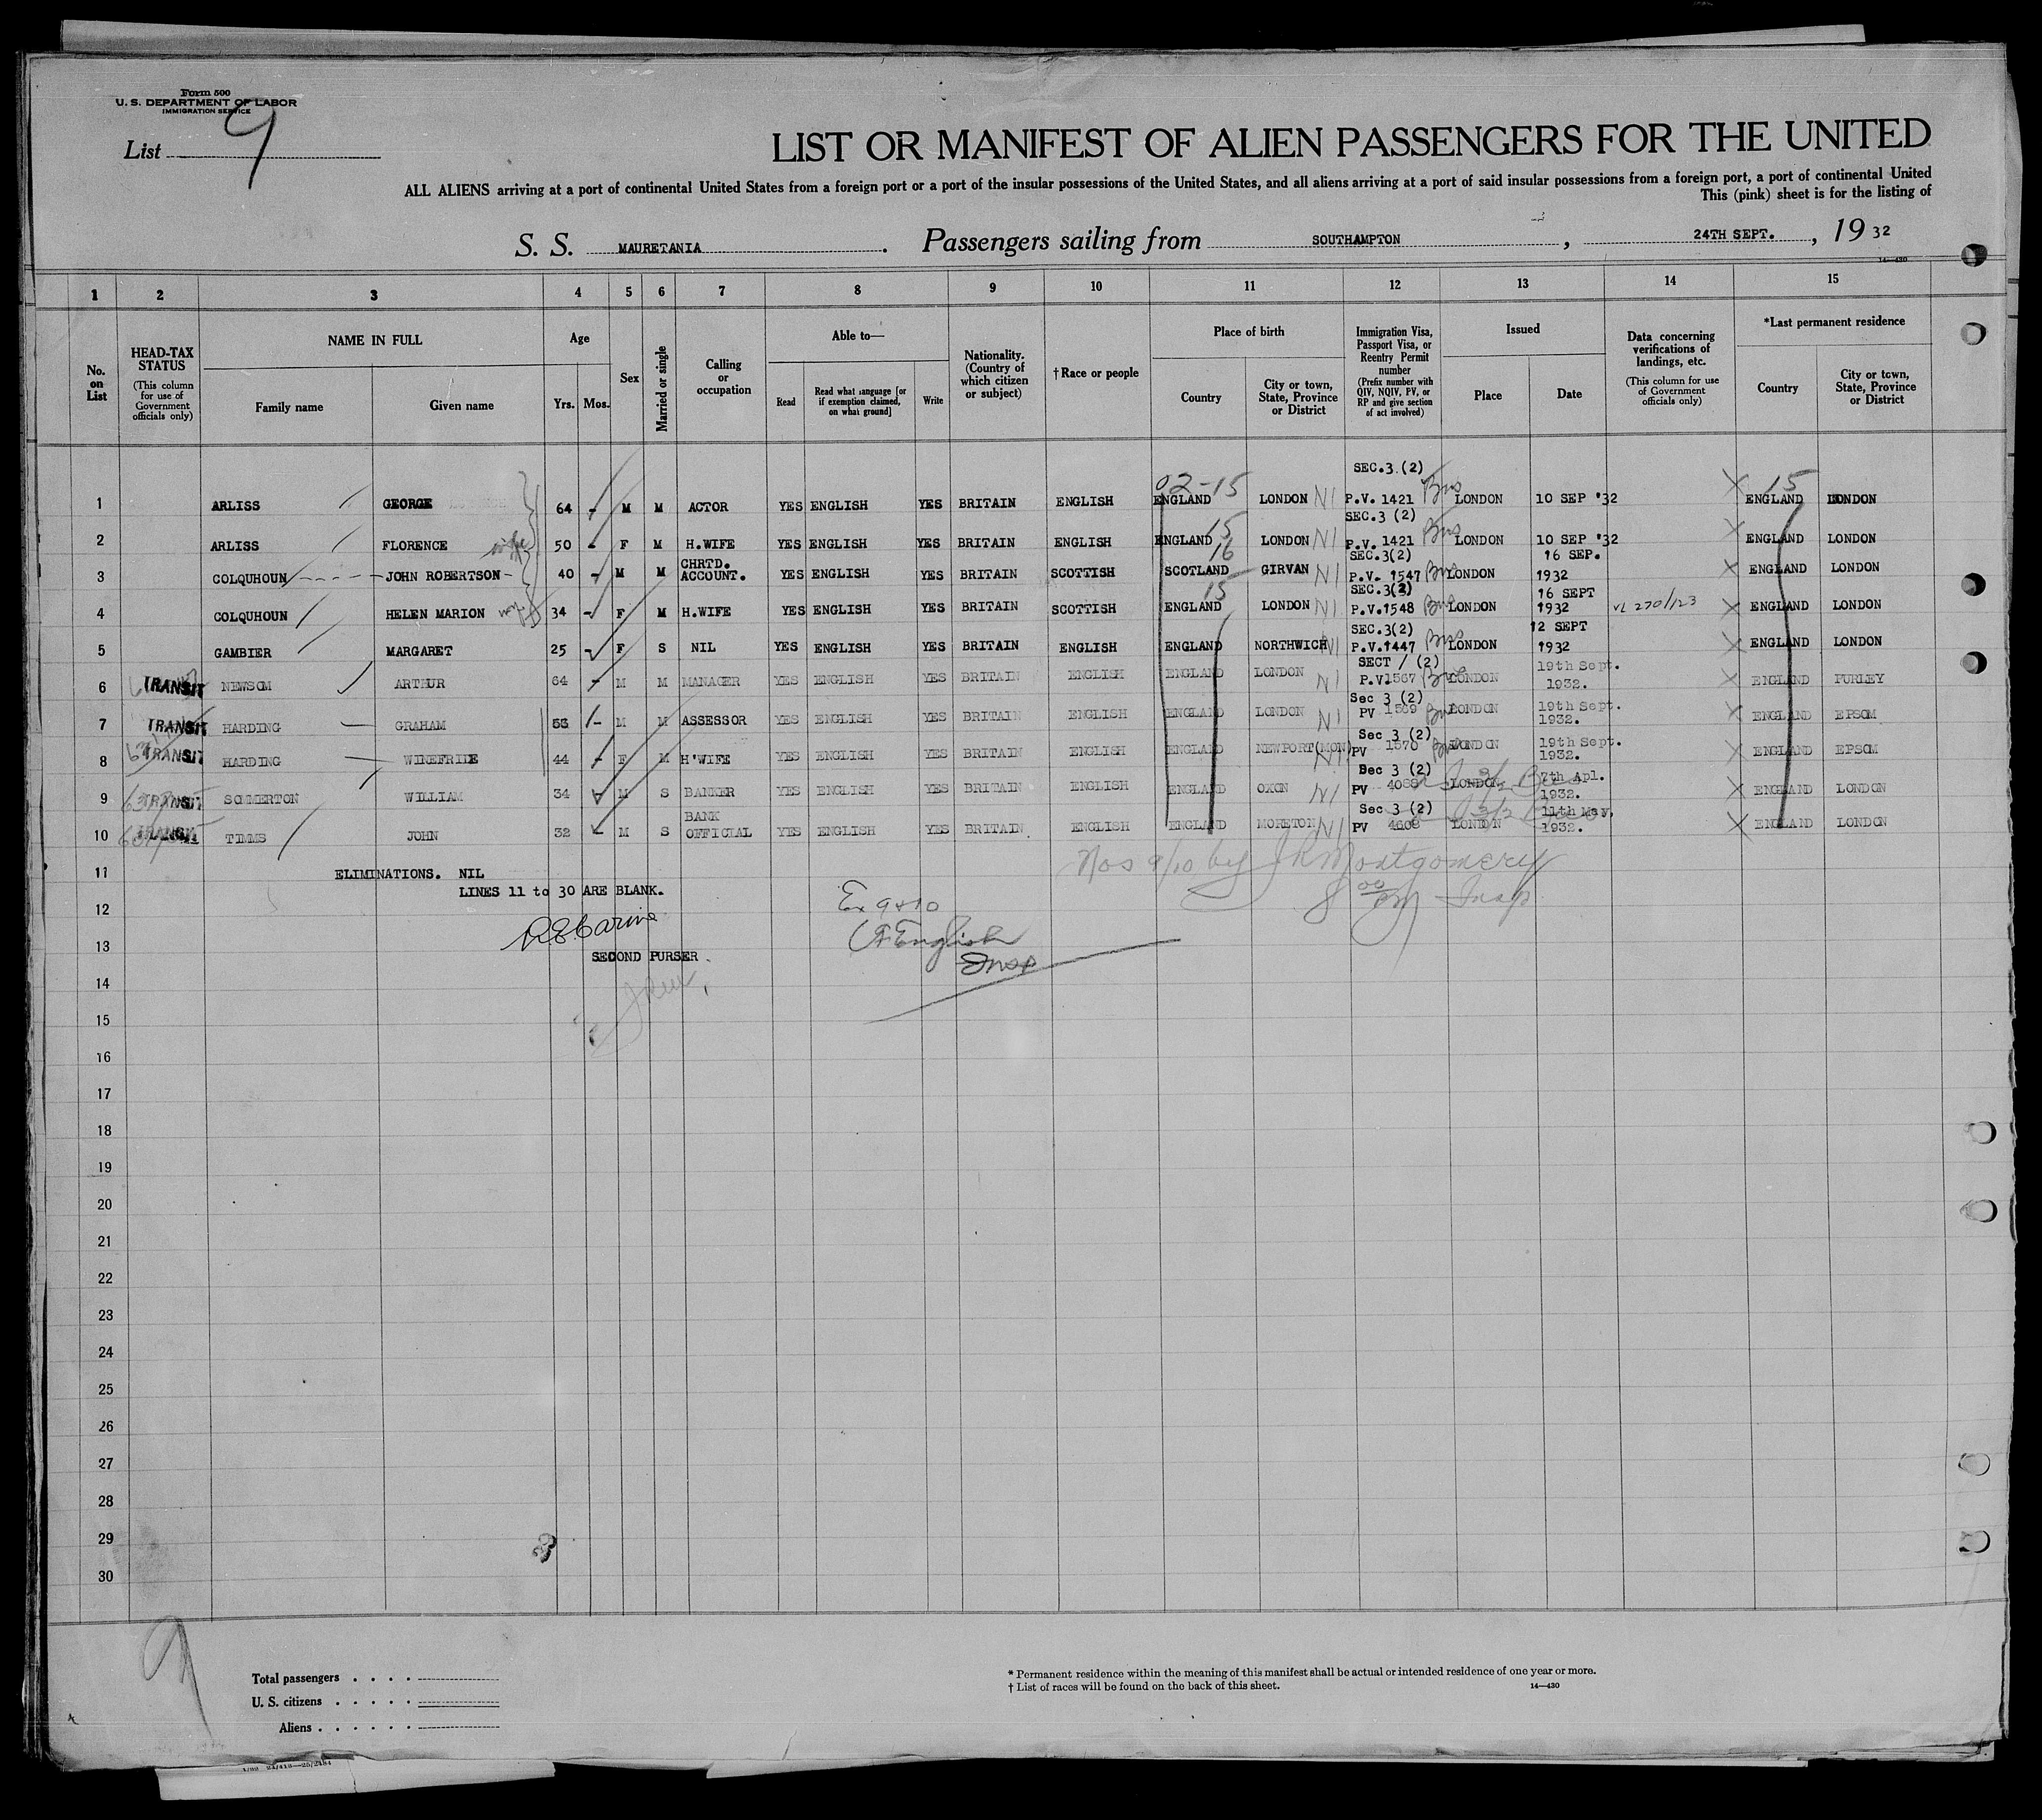 Form 500
U. S. DEPARTMENT OF LABOR
IMMIGRATION SERVICE
List 9
LIST OR MANIFEST OF ALIEN PASSENGERS FOR THE UNITED
ALL ALIENS arriving at a port of continental United States from a foreign port or a port of the insular possessions of the United States, and all aliens arriving at a port of said insular possessions from a foreign port, a port of continental United
This (pink) sheet is for the listing of
S. S. MAURETANIA. Passengers sailing from SOUTHAMPTON, 24TH SEPT., 1932
14—430
1 2 3 4 5 6 7 8 9 10 11 12 13 14 15
No. on List
HEAD-TAX STATUS (This column for use of Government officials only)
NAME IN FULL
Family name Given name
Age
Yrs. Mos.
Sex
Married or single
Calling or occupation
Able to—
Read
Read what language [or if exemption claimed, on what ground]
Write
Nationality. (Country of which citizen or subject)
† Race or people
Place of birth
Country
City or town, State, Province or District
Immigration Visa, Passport Visa, or Reentry Permit number (Prefix number with QIV, NQIV, PV, or RP and give section of act involved)
Issued
Place Date
Data concerning verifications of landings, etc. (This column for use of Government officials only)
*Last permanent residence
Country
City or town, State, Province or District
02-15 SEC.3.(2) 15
1 ARLISS GEORGE 64 - M M ACTOR YES ENGLISH YES BRITAIN ENGLISH ENGLAND LONDON NI P.V. 1421 LONDON 10 SEP '32 X ENGLAND LONDON
15 SEC.3 (2)
2 ARLISS FLORENCE wife 50 - F M H.WIFE YES ENGLISH YES BRITAIN ENGLISH ENGLAND LONDON NI P.V. 1421 LONDON 10 SEP '32 X ENGLAND LONDON
16 SEC.3(2)
3 COLQUHOUN JOHN ROBERTSON 40 - M M CHRTD. ACCOUNT. YES ENGLISH YES BRITAIN SCOTTISH SCOTLAND GIRVAN NI P.V. 1547 LONDON 16 SEP. 1932 X ENGLAND LONDON
15 SEC.3(2)
4 COLQUHOUN HELEN MARION wife 34 - F M H.WIFE YES ENGLISH YES BRITAIN SCOTTISH ENGLAND LONDON NI P.V.1548 LONDON 16 SEPT 1932 VL 270/123 X ENGLAND LONDON
SEC.3(2)
5 GAMBIER MARGARET 25 - F S NIL YES ENGLISH YES BRITAIN ENGLISH ENGLAND NORTHWICH NI P.V.1447 LONDON 12 SEPT 1932 X ENGLAND LONDON
SECT / (2)
6 TRANSIT NEWSOM ARTHUR 64 - M M MANAGER YES ENGLISH YES BRITAIN ENGLISH ENGLAND LONDON NI P.V1567 LONDON 19th Sept. 1932. X ENGLAND PURLEY
Sec 3 (2)
7 TRANSIT HARDING GRAHAM 53 - M M ASSESSOR YES ENGLISH YES BRITAIN ENGLISH ENGLAND LONDON NI PV 1569 LONDON 19th Sept. 1932. X ENGLAND EPSOM
Sec 3 (2)
8 TRANSIT HARDING WINEFRIDE 44 - F M H'WIFE YES ENGLISH YES BRITAIN ENGLISH ENGLAND NEWPORT(MON) NI PV 1570 LONDON 19th Sept. 1932. X ENGLAND EPSOM
Sec 3 (2)
9 TRANSIT SOMMERTON WILLIAM 34 M S BANKER YES ENGLISH YES BRITAIN ENGLISH ENGLAND OXON NI PV 4088 LONDON 7th Apl. 1932. X ENGLAND LONDON
Sec 3 (2)
10 TRANSIT TIMMS JOHN 32 M S BANK OFFICIAL YES ENGLISH YES BRITAIN ENGLISH ENGLAND MORETON NI PV 4608 LONDON 11th May, 1932. X ENGLAND LONDON
11 ELIMINATIONS. NIL
LINES 11 to 30 ARE BLANK.
Nos 9/10 by J R Montgomery
8 00 PM Insp
12 Ex 9+10
English
Insp
13 SECOND PURSER.
14
15
16
17
18
19
20
21
22
23
24
25
26
27
28
29
30
9
Total passengers . . . .
U. S. citizens . . . . .
Aliens . . . . . .
* Permanent residence within the meaning of this manifest shall be actual or intended residence of one year or more.
† List of races will be found on the back of this sheet.
14—430